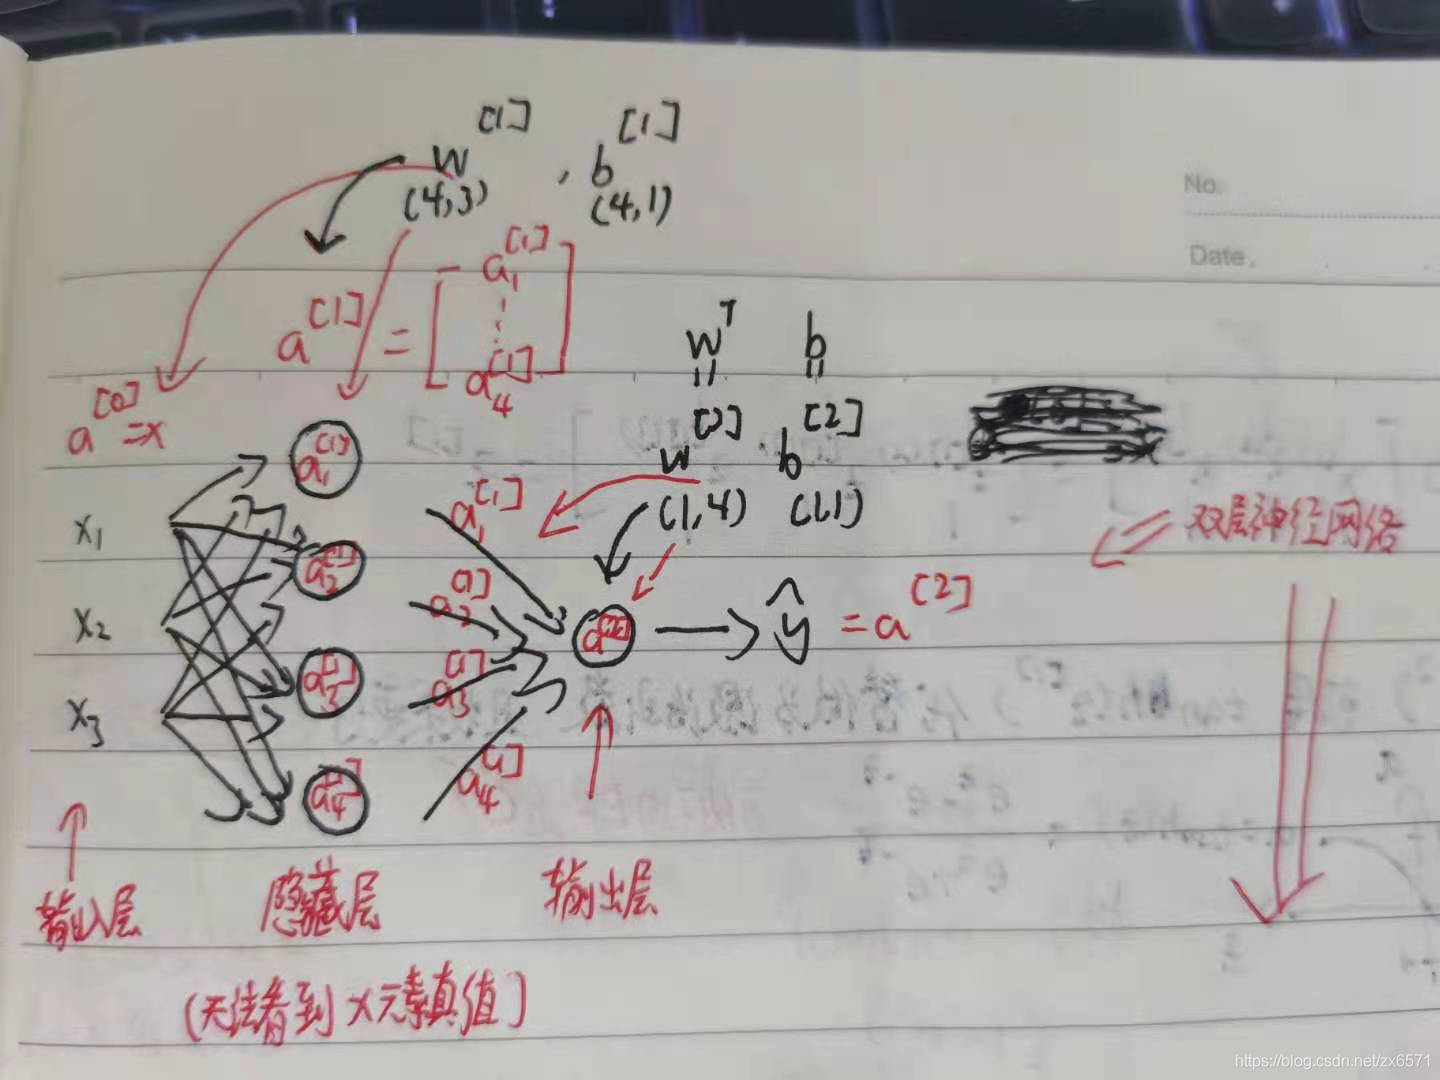 w^[1] , b^[1]
(4,3) (4,1)
No.
Date.
a^[1] = [a_1^[1] ⋮ a_4^[1]]
w^T b
w^[2] b^[2]
(1,4) (1,1)
a^[0]=x
a_1^[1]
a_1^[1]
双层神经网络
x_1
a_2^[1]
a_2^[1]
x_2
a^[2]
ŷ = a^[2]
a_3^[1]
a_3^[1]
x_3
a_4^[1]
a_4^[1]
输入层 隐藏层 输出层
(无法看到x元素真值)
https://blog.csdn.net/zx6571